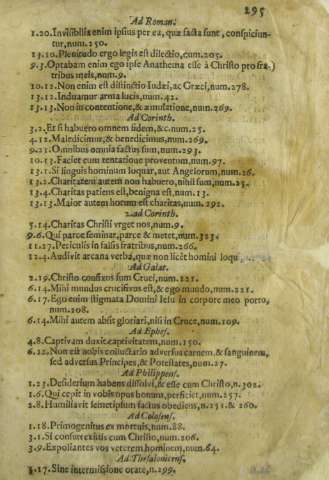 295
Ad Roman.
1.20. Invisibilia enim ipsius per ea, quæ facta sunt, conspiciun-
tur, num. 250.
13.10. Plenitudo ergo legis est dilectio, num. 205.
9.3. Optabam enim ego ipse Anathema esse à Christo pro fra-
tribus meis, num. 9.
10.12. Non enim est distinctio Iudæi, ac Græci, num. 278.
13.12. Induamur arma lucis, num. 42.
13.13. Non in contentione, & æmulatione, num. 269.
Ad Corinth.
3.2. Et si habuero omnem fidem, &c. num. 25.
4.12. Maledicimur, & benedicimus, num. 269.
9.22. Omnibus omnia factus sum, num. 293.
10.13. Faciet cum tentatione proventum, num. 97.
13.1. Si linguis hominum loquar, aut Angelorum, num. 26.
13.2. Charitatem autem non habuero, nihil sum, num. 25.
13.4. Charitas patiens est, benigna est, num. 13.
13.13. Maior autem horum est charitas, num. 292.
2. ad Corinth.
5.14. Charitas Christi urget nos, num. 9.
9.6. Qui parcè seminat, parcè & metet, num. 323.
11.27. Periculis in falsis fratribus, num. 266.
12.4. Audivit arcana verba, quæ non licèt homini loqui,
Ad Galat.
2.19. Christo confixus sum Cruci, num. 221.
6.14. Mihi mundus crucifixus est, & ego mundo, num. 221.
6.17. Ego enim stigmata Domini Iesu in corpore meo porto,
num. 208.
6.14. Mihi autem absit gloriari, nisi in Cruce, num. 209.
Ad Ephes.
4.8. Captivam duxit captivitatem, num. 150.
6.12. Non est nobis colluctatio adversus carnem, & sanguinem,
sed adversus Principes, & Potestates, num. 27.
Ad Philippens.
1.23. Desiderium habens dissolvi, & esse cum Christo, n. 302.
1.6. Qui cepit in vobis opus bonum, perficiet, num. 257.
2.8. Humiliavit semetipsum factus obediens, n. 251. & 260.
Ad Colosens.
1.18. Primogenitus ex mortuis, num. 88.
3.1. Si consurrexistis cum Christo, num. 206.
3.9. Expoliantes vos veterem hominem, num. 64.
Ad Thesalonicens.
5.17. Sine intermissione orate, n. 299.